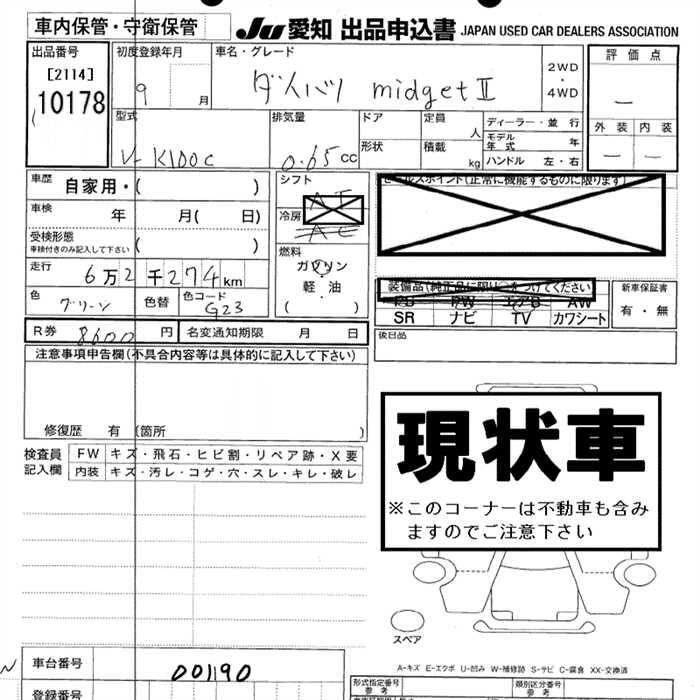 車内保管・守衛保管 JU 愛知 出品申込書 JAPAN USED CAR DEALERS ASSOCIATION
出品番号 初度登録年月 車名・グレード 2WD・4WD 評価点
[2114]
10178 9 月 ダイハツ midget II —
型式 排気量 ドア 定員 人 ディーラー・並行 外装 内装
V-K100C 0.65 CC 形状 積載 kg モデル年式 年 — —
ハンドル 左・右
車歴 自家用・( ) シフト セールスポイント(正常に機能するものに限ります)
AT
車検 年 月( 日) 冷房
AC
受検形態 ( )
車検付きのみ記入して下さい
燃料
走行 6万2千274km ガソリン
軽・油
( )
装備品(純正品に限り○をつけてください) 新車保証書
色 グリーン 色替 色コード G23 PS PW エアB AW 有・無
SR ナビ TV カワシート
R券 8600 円 名変通知期限 月 日 後日品
注意事項申告欄(不具合内容等は具体的に記入して下さい)
修復歴 有 (箇所 )
現状車
※このコーナーは不動車も含み
ますのでご注意下さい
検査員 FW キズ・飛石・ヒビ割・リペア跡・X要
記入欄 内装 キズ・汚レ・コゲ・穴・スレ・キレ・破レ
スペア
A-キズ E-エクボ U-凹み W-補修跡 S-サビ C-腐食 XX-交換済
車台番号 001190
形式指定番号 類別区分番号
参考 参考
登録番号